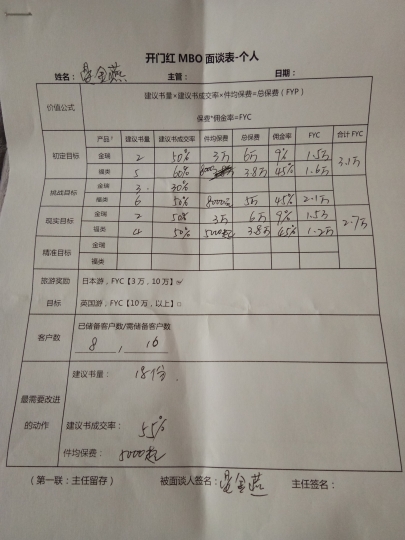 开门红 MBO 面谈表-个人
姓名： 金燕 主管： 日期：
价值公式 建议书量×建议书成交率×件均保费=总保费（FYP）
保费*佣金率=FYC
产品 建议书量 建议书成交率 件均保费 总保费 佣金率 FYC 合计 FYC
初定目标 金瑞 2 50% 3万 6万 9% 1.5万 3.1万
福类 5 60% 6000 3.8万 45% 1.6万
挑战目标 金瑞 3 30%
福类 6 50% 8000元 5万 45% 2.1万
现实目标 金瑞 2 50% 3万 6万 9% 1.5万 2.7万
福类 4 50% 5000起 3.8万 45% 1.2万
精准目标 金瑞
福类
旅游奖励 日本游，FYC【3 万，10 万】
目标 英国游，FYC【10 万，以上】□
客户数 已储备客户数/需储备客户数
8 , 16
建议书量： 18份
最需要改进
的动作 建议书成交率： 55%
件均保费： 5000起
（第一联：主任留存） 被面谈人签名： 金燕 主任签名：